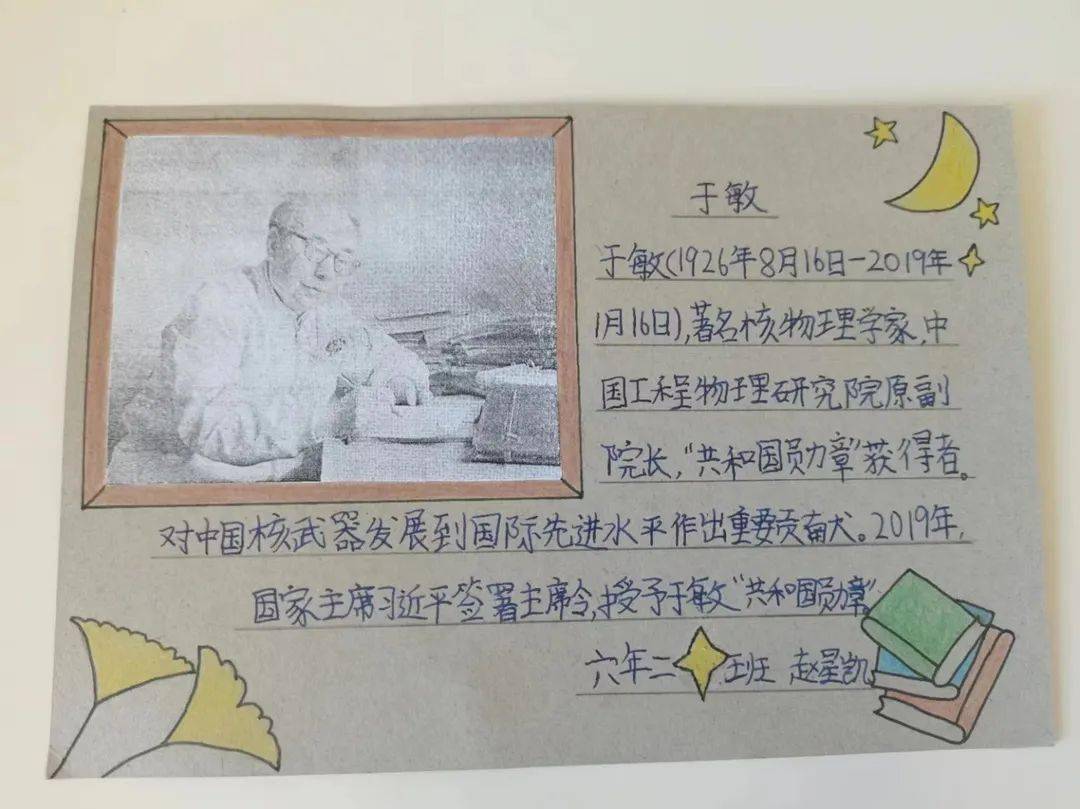 于敏
于敏(1926年8月16日-2019年
1月16日),著名核物理学家,中
国工程物理研究院原副
院长,“共和国勋章”获得者。
对中国核武器发展到国际先进水平作出重要贡献。2019年,
国家主席习近平签署主席令,授予于敏“共和国勋章”
六年二班 赵星凯